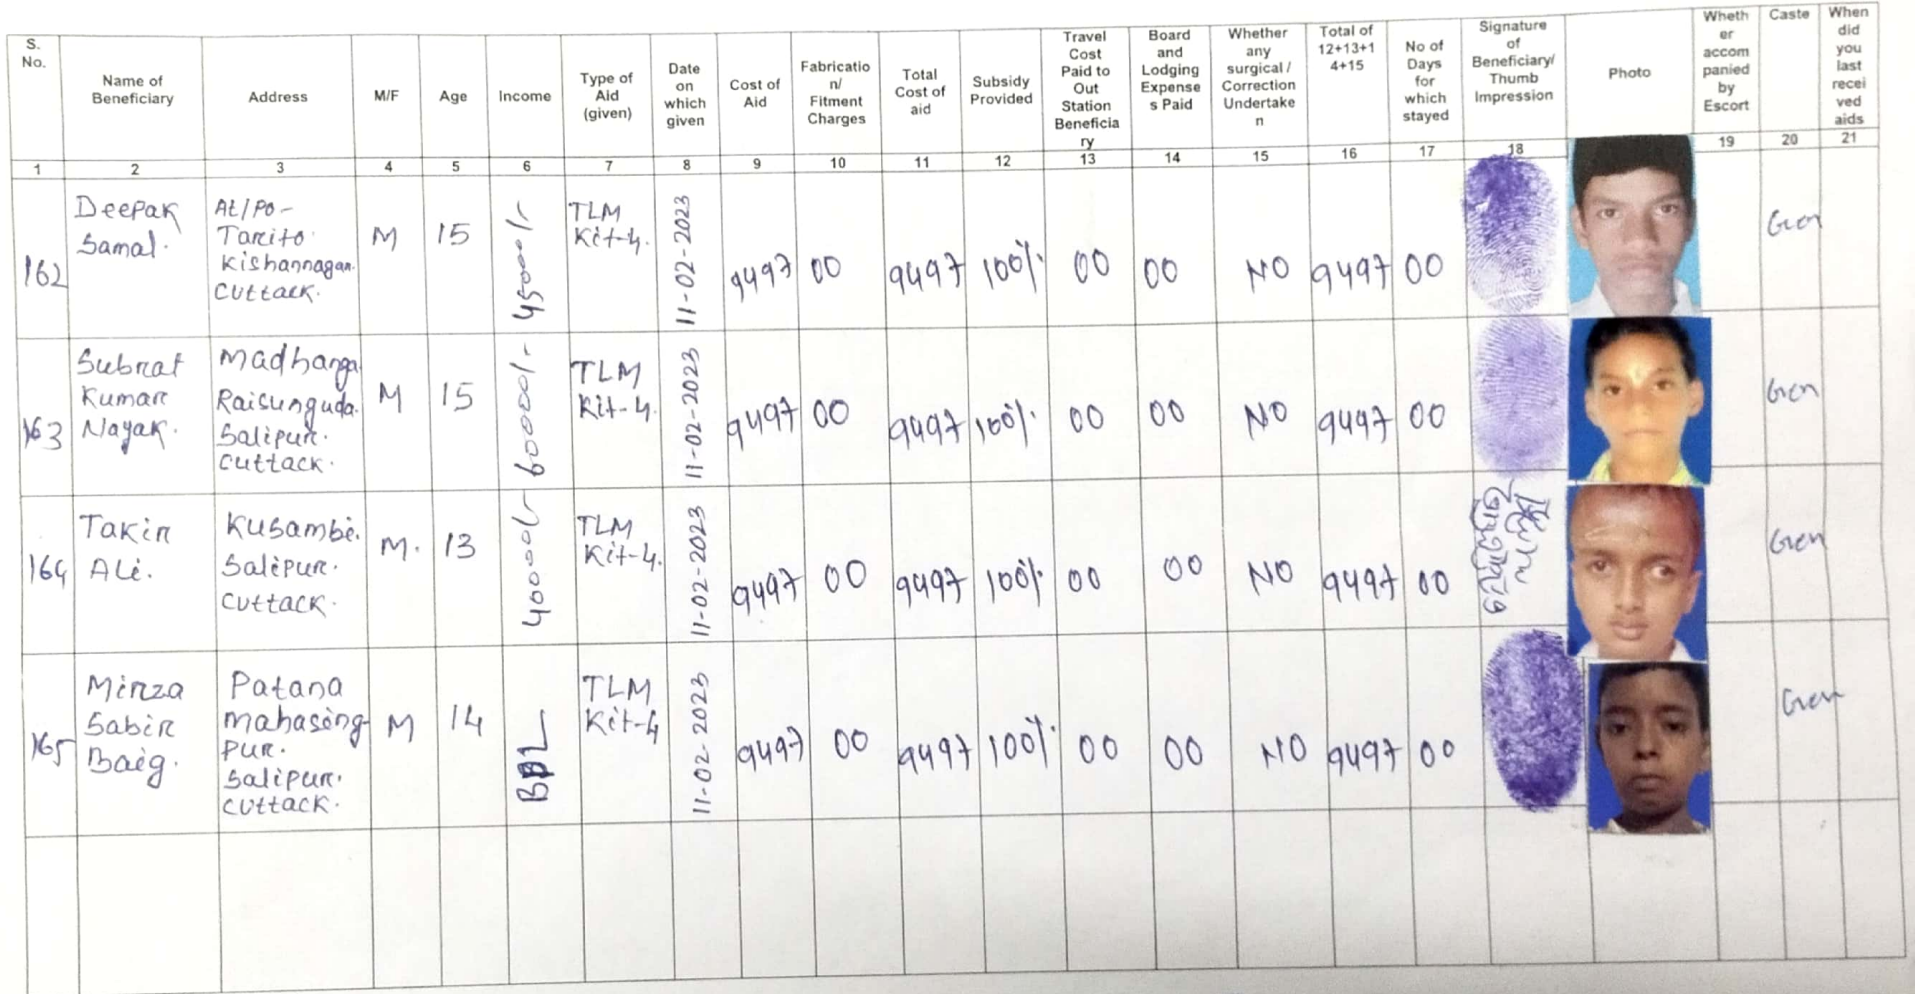 S. No.
Name of Beneficiary
Address
M/F
Age
Income
Type of Aid (given)
Date on which given
Cost of Aid
Fabricatio n/ Fitment Charges
Total Cost of aid
Subsidy Provided
Travel Cost Paid to Out Station Beneficia ry
Board and Lodging Expense s Paid
Whether any surgical / Correction Undertake n
Total of 12+13+1 4+15
No of Days for which stayed
Signature of Beneficiary/ Thumb Impression
Photo
Wheth er accom panied by Escort
Caste
When did you last recei ved aids
1 2 3 4 5 6 7 8 9 10 11 12 13 14 15 16 17 18 19 20 21
162
Deepak
Samal.
At/Po-
Tarito
Kishannagar.
Cuttack.
M
15
45000/-
TLM
Kit-4.
11-02-2023
9497
00
9497
100%
00
00
NO
9497
00
Gen
163
Subrat
Kumar
Nayak.
Madhanga
Raisunguda.
Salipur.
Cuttack.
M
15
60000/-
TLM
Kit-4.
11-02-2023
9497
00
9497
100%
00
00
NO
9497
00
Gen
164
Takir
Ali.
Kusambi.
Salipur.
Cuttack.
M.
13
40000/-
TLM
Kit-4.
11-02-2023
9497
00
9497
100%
00
00
NO
9497
00
Gen
165
Mirza
Sabir
Baig.
Patana
Mahasing-
pur.
Salipur.
Cuttack.
M
14
BPL
TLM
Kit-4
11-02-2023
9497
00
9497
100%
00
00
NO
9497
00
Gen